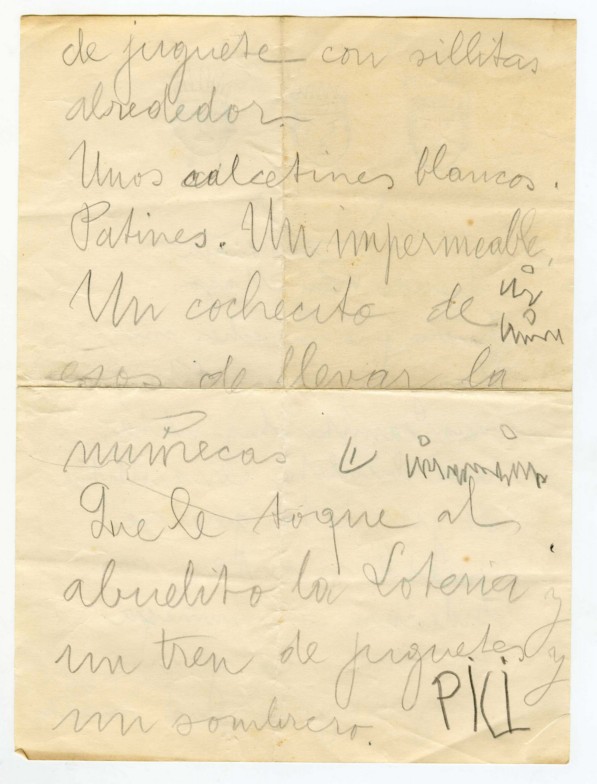 de juguete con sillitas
alrededor
Unos calcetines blancos.
Patines. Un impermeable,
Un cochecito de
esos de llevar la
muñecas
Que le toque al
abuelito la Loteria y
un tren de juguetes y
un sombrero.
PiCi